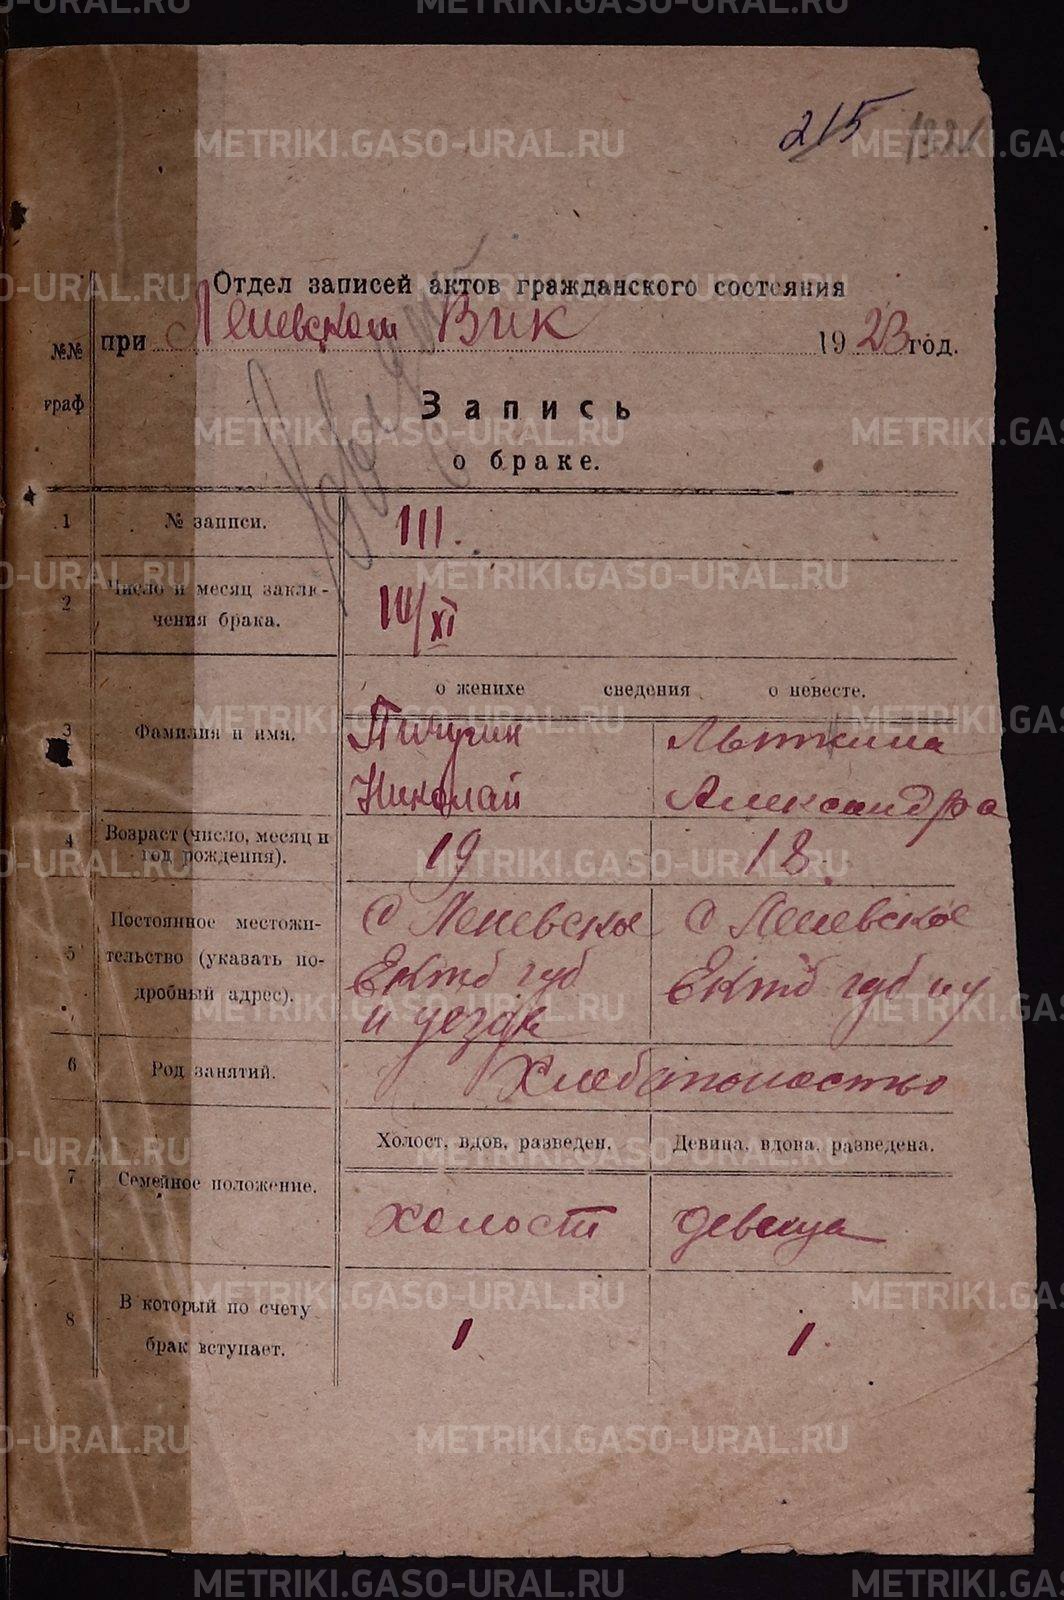 215
Отдел записей актов гражданского состояния
при Леневском Вик 1923 год.
№№ граф
Запись
о браке.
1 № записи. 111.
2 Число и месяц заключения брака. 10/XI
о женихе сведения о невесте.
3 Фамилия и имя.
Пичугин Лыткина
Николай Александра
4 Возраст (число, месяц и год рождения). 19 18.
5 Постоянное местожительство (указать подробный адрес).
с Леневское с Леневское
Екатб губ Екатб губ и у
и уезда
6 Род занятий. Хлебопашество
Холост, вдов, разведен. Девица, вдова, разведена.
7 Семейное положение.
холост девица
8 В который по счету брак вступает. 1 1.
METRIKI.GASO-URAL.RU